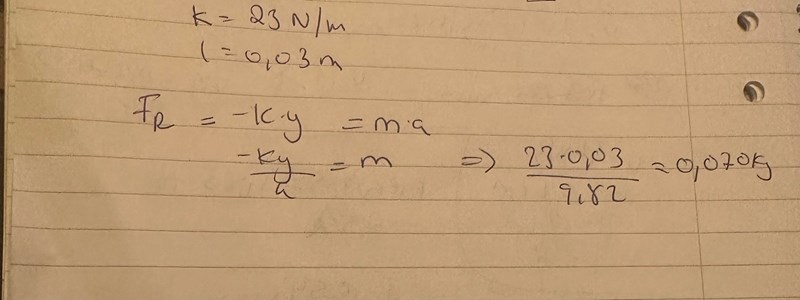 k = 23 N/m
l = 0,03 m
F_R = -k·y = m·a
-ky/a = m => 23·0,03/9,82 = 0,070kg